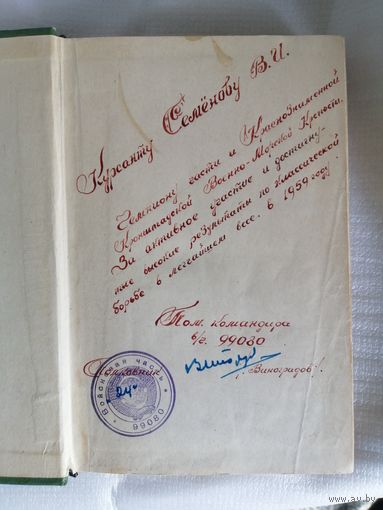 Курсанту Семёнову В.И.
Чемпиону части и Краснознаменной
Кронштадской Военно-Морской Крепости.
За активное участие и достигну-
тые высокие результаты по классической
борьбе в легчайшем весе. в 1959 году.
Пом. командира
в/ч. 99080
Полковник
/ Виноградов /
Войсковая часть
99080
"24"
www.au.by